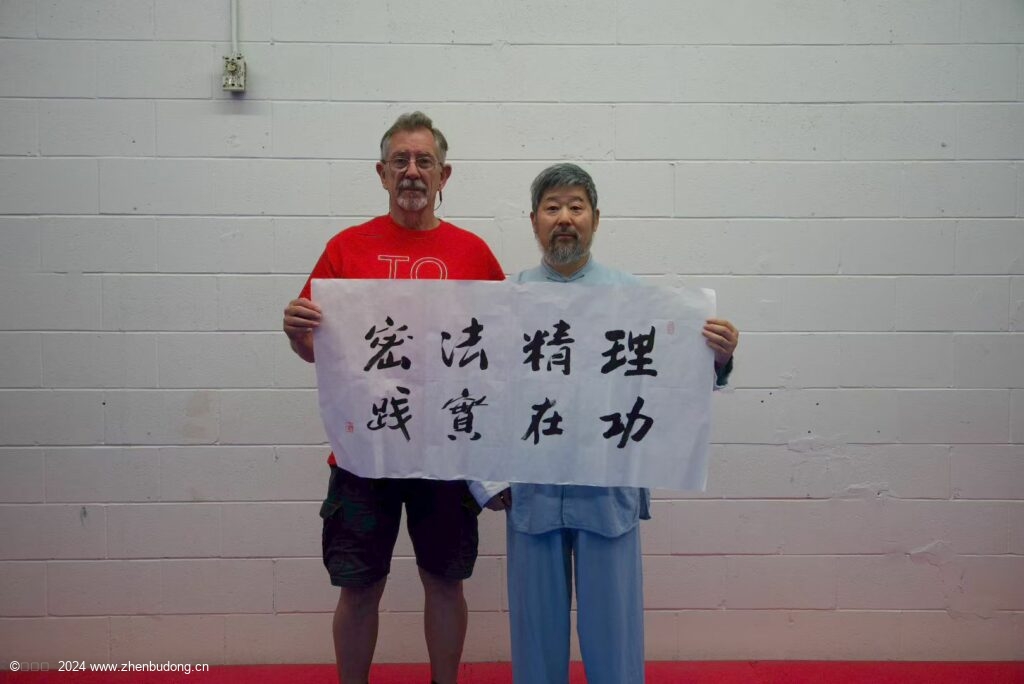 TO
理精法密
功在實践
© 2024 www.zhenbudong.cn